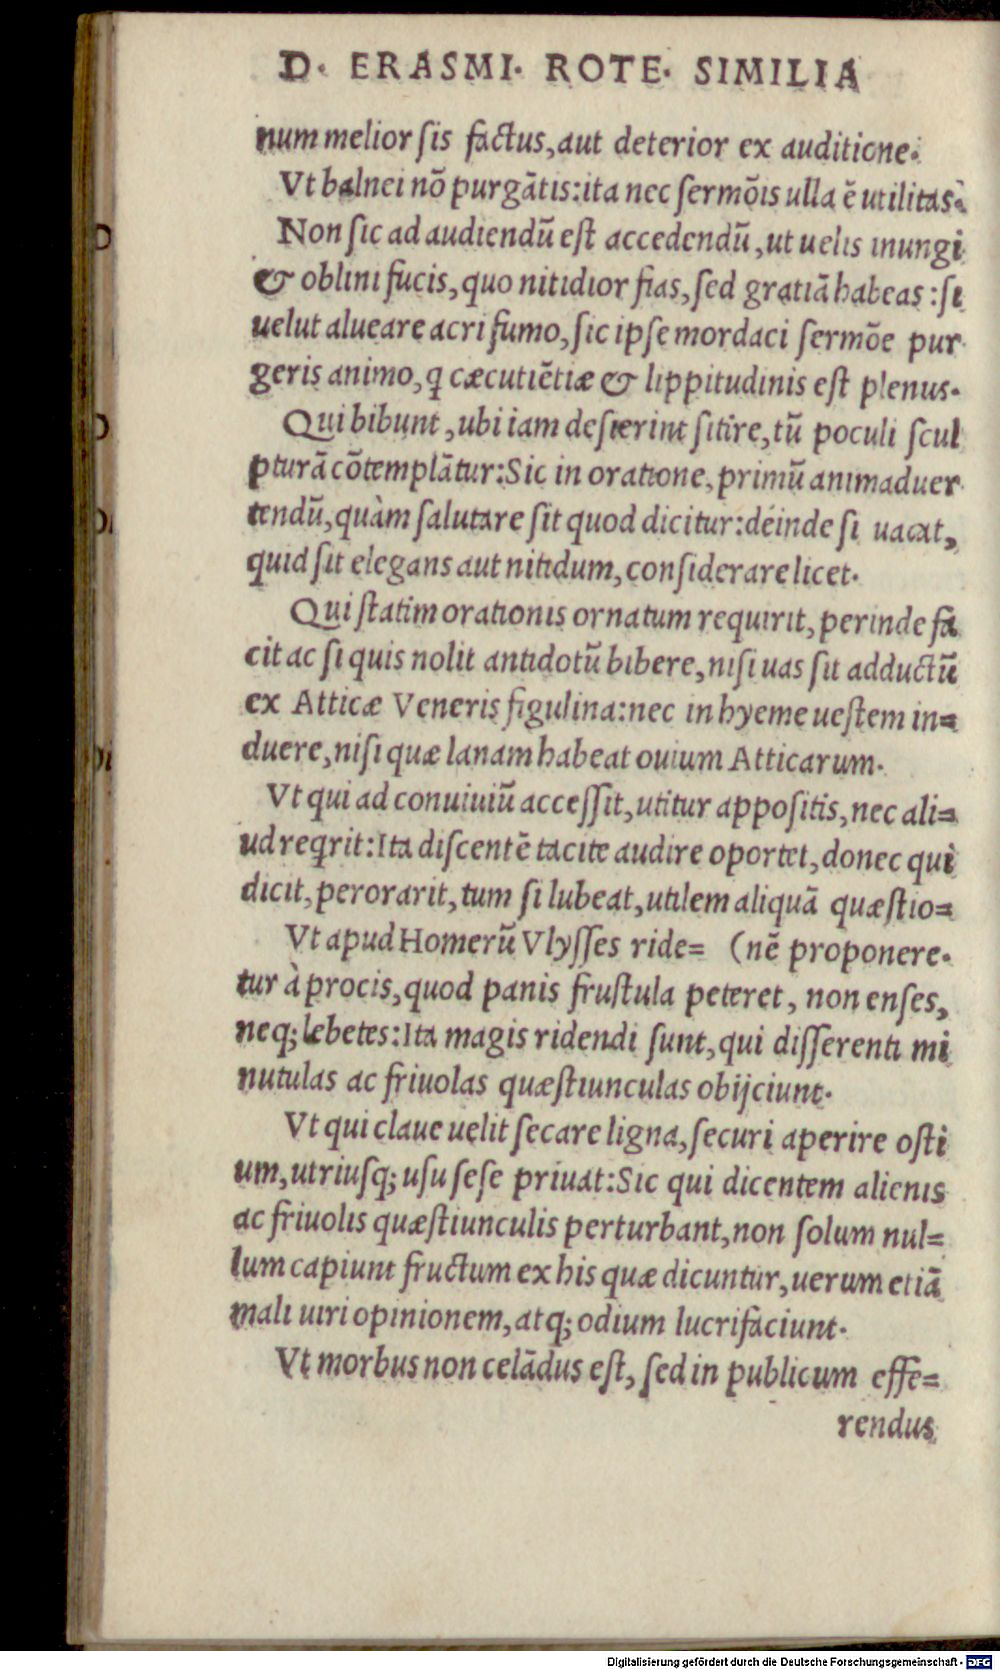 D. ERASMI. ROTE. SIMILIA
num melior ſis factus, aut deterior ex auditione.
Vt balnei nõ purgãtis: ita nec ſermõis ulla ẽ utilitas.
Non ſic ad audiendũ eſt accedendũ, ut uelis inungi
& oblini fucis, quo nitidior fias, ſed gratiã habeas: ſi
uelut alueare acri fumo, ſic ipſe mordaci ſermõe pur
geris animo, q cæcutiẽtiæ & lippitudinis eſt plenus.
Qui bibunt, ubi iam deſierint ſitire, tũ poculi ſcul
pturã cõtemplãtur: Sic in oratione, primũ animaduer
tendũ, quàm ſalutare ſit quod dicitur: deinde ſi uacat,
quid ſit elegans aut nitidum, conſiderare licet.
Qui ſtatim orationis ornatum requirit, perinde fa
cit ac ſi quis nolit antidotũ bibere, niſi uas ſit adductũ
ex Atticæ Veneris figulina: nec in hyeme ueſtem in=
duere, niſi quæ lanam habeat ouium Atticarum.
Vt qui ad conuiuiũ acceſſit, utitur appoſitis, nec ali=
ud reqrit: Ita diſcentẽ tacite audire oportet, donec qui
dicit, perorarit, tum ſi lubeat, utilem aliquã quæſtio=
Vt apud Homerũ Vlyſſes ride= (nẽ proponere.
tur à procis, quod panis fruſtula peteret, non enſes,
neq; lebetes: Ita magis ridendi ſunt, qui diſſerenti mi
nutulas ac friuolas quæſtiunculas obijciunt.
Vt qui claue uelit ſecare ligna, ſecuri aperire oſti
um, utriuſq; uſu ſeſe priuat: Sic qui dicentem alienis
ac friuolis quæſtiunculis perturbant, non ſolum nul=
lum capiunt fructum ex his quæ dicuntur, uerum etiã
mali uiri opinionem, atq; odium lucrifaciunt.
Vt morbus non celãdus eſt, ſed in publicum effe=
rendus
Digitalisierung gefördert durch die Deutsche Forschungsgemeinschaft - DFG